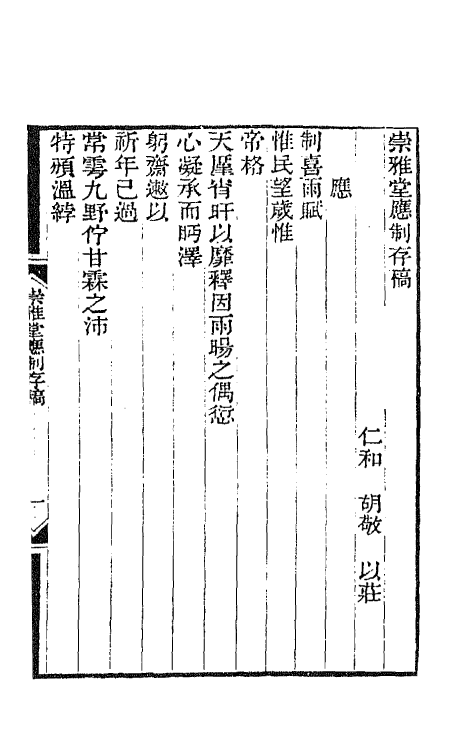 崇雅堂應制存稿
仁和 胡敬 以莊
應
制喜雨賦
惟民望歲惟
帝格
天廑宵旰以靡釋因雨暘之偶愆
心凝承而眄澤
躬齋遬以
祈年已過
常雩九野佇甘霖之沛
特頒溫綍
崇雅堂應制存稿
一